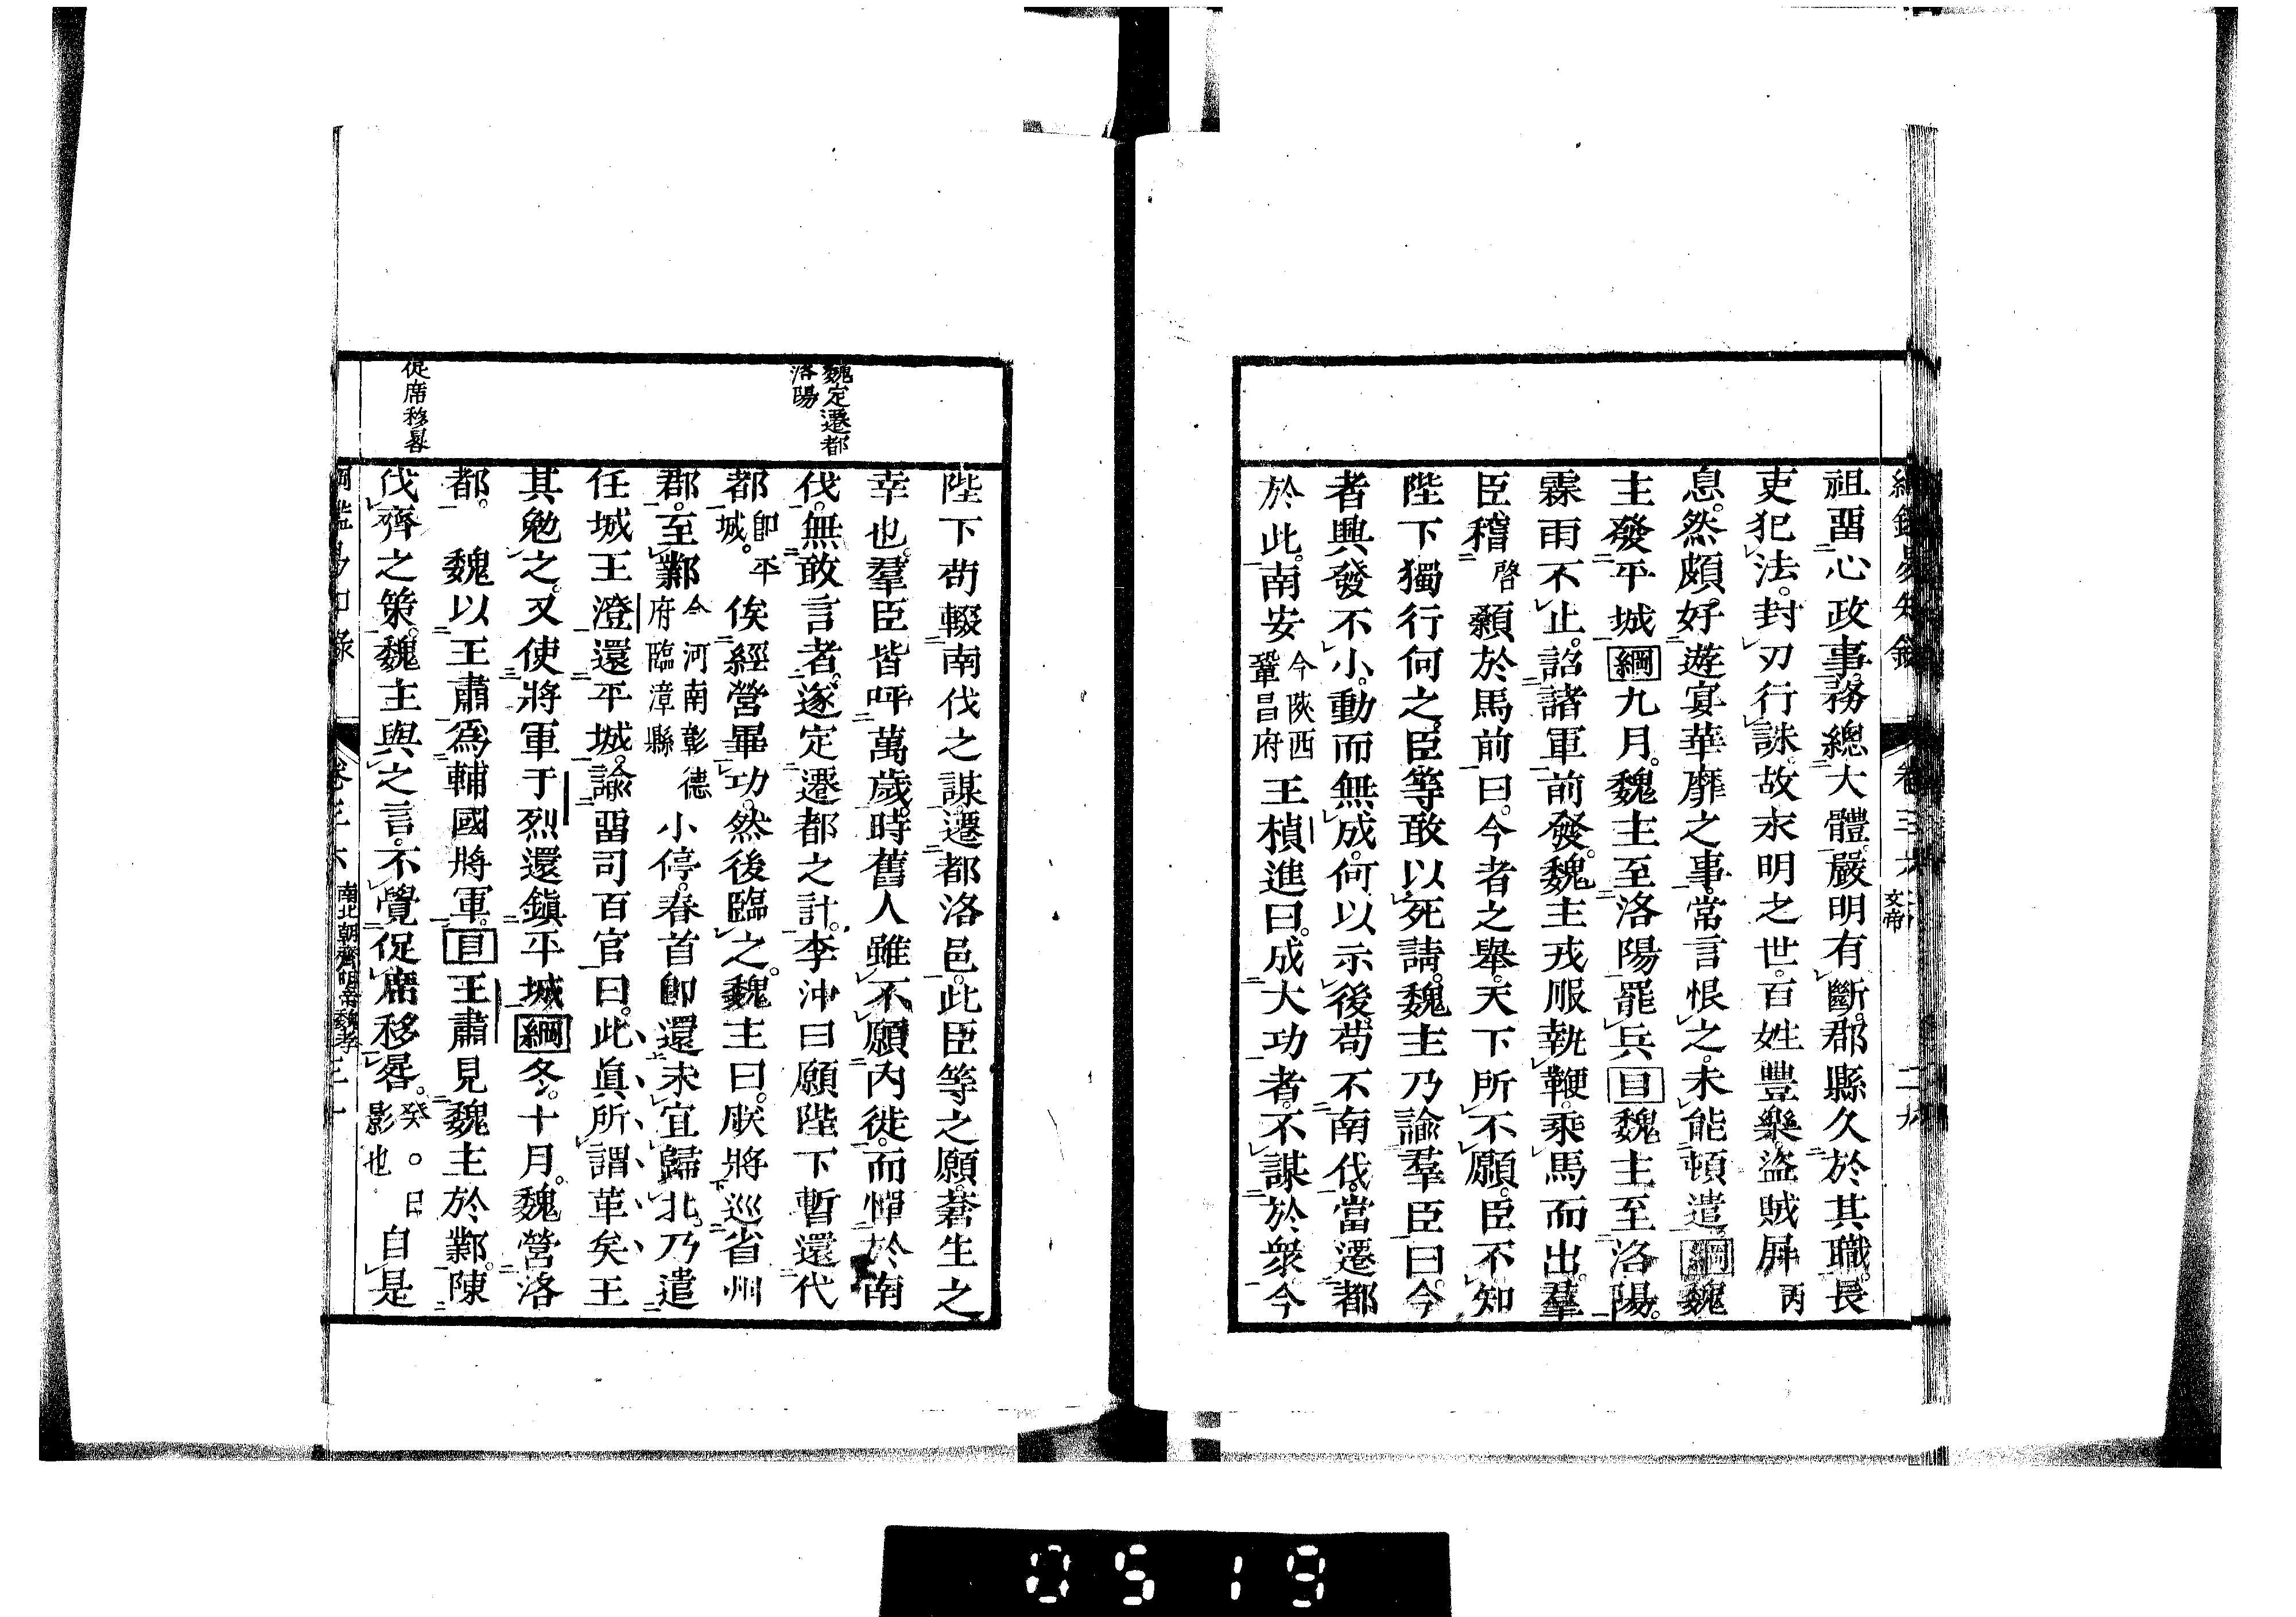 祖畱心政事。務總大體。嚴明有斷。郡縣久於其職。長
吏犯法。封刃行誅。故永明之世。百姓豐樂。盜賊屏丙
息。然頗好遊宴。華靡之事。常言恨之。未能頓遣。綱魏
主發平城綱九月。魏主至洛陽罷兵目魏主至洛陽。
霖雨不止。詔諸軍前發。魏主戎服執鞭。乘馬而出。羣
臣稽啓顙於馬前曰。今者之舉。天下所不願。臣不知
陛下獨行何之。臣等敢以死請。魏主乃諭羣臣曰。今
者興發不小。動而無成。何以示後。苟不南伐。當遷都
於此。南安今陝西鞏昌府王楨進曰。成大功者。不謀於衆。今
魏定遷都
洛陽
促席移晷
陛下苟輟南伐之謀。遷都洛邑。此臣等之願。蒼生之
幸也。羣臣皆呼萬歲。時舊人雖不願內徙。而憚於南
伐。無敢言者。遂定遷都之計。李沖曰願陛下暫還代
都卽平城。俟經營畢功。然後臨之。魏主曰。朕將巡省州
郡。至鄴今河南彰德府臨漳縣小停。春首卽還。未宜歸北。乃遣
任城王澄還平城。諭畱司百官曰。此眞所謂革矣。王
其勉之。又使將軍于烈還鎭平城綱冬。十月。魏營洛
都。魏以王肅爲輔國將軍。目王肅見魏主於鄴。陳
伐齊之策。魏主與之言。不覺促席移晷。癸。日影也自是
南北朝齊明帝魏孝